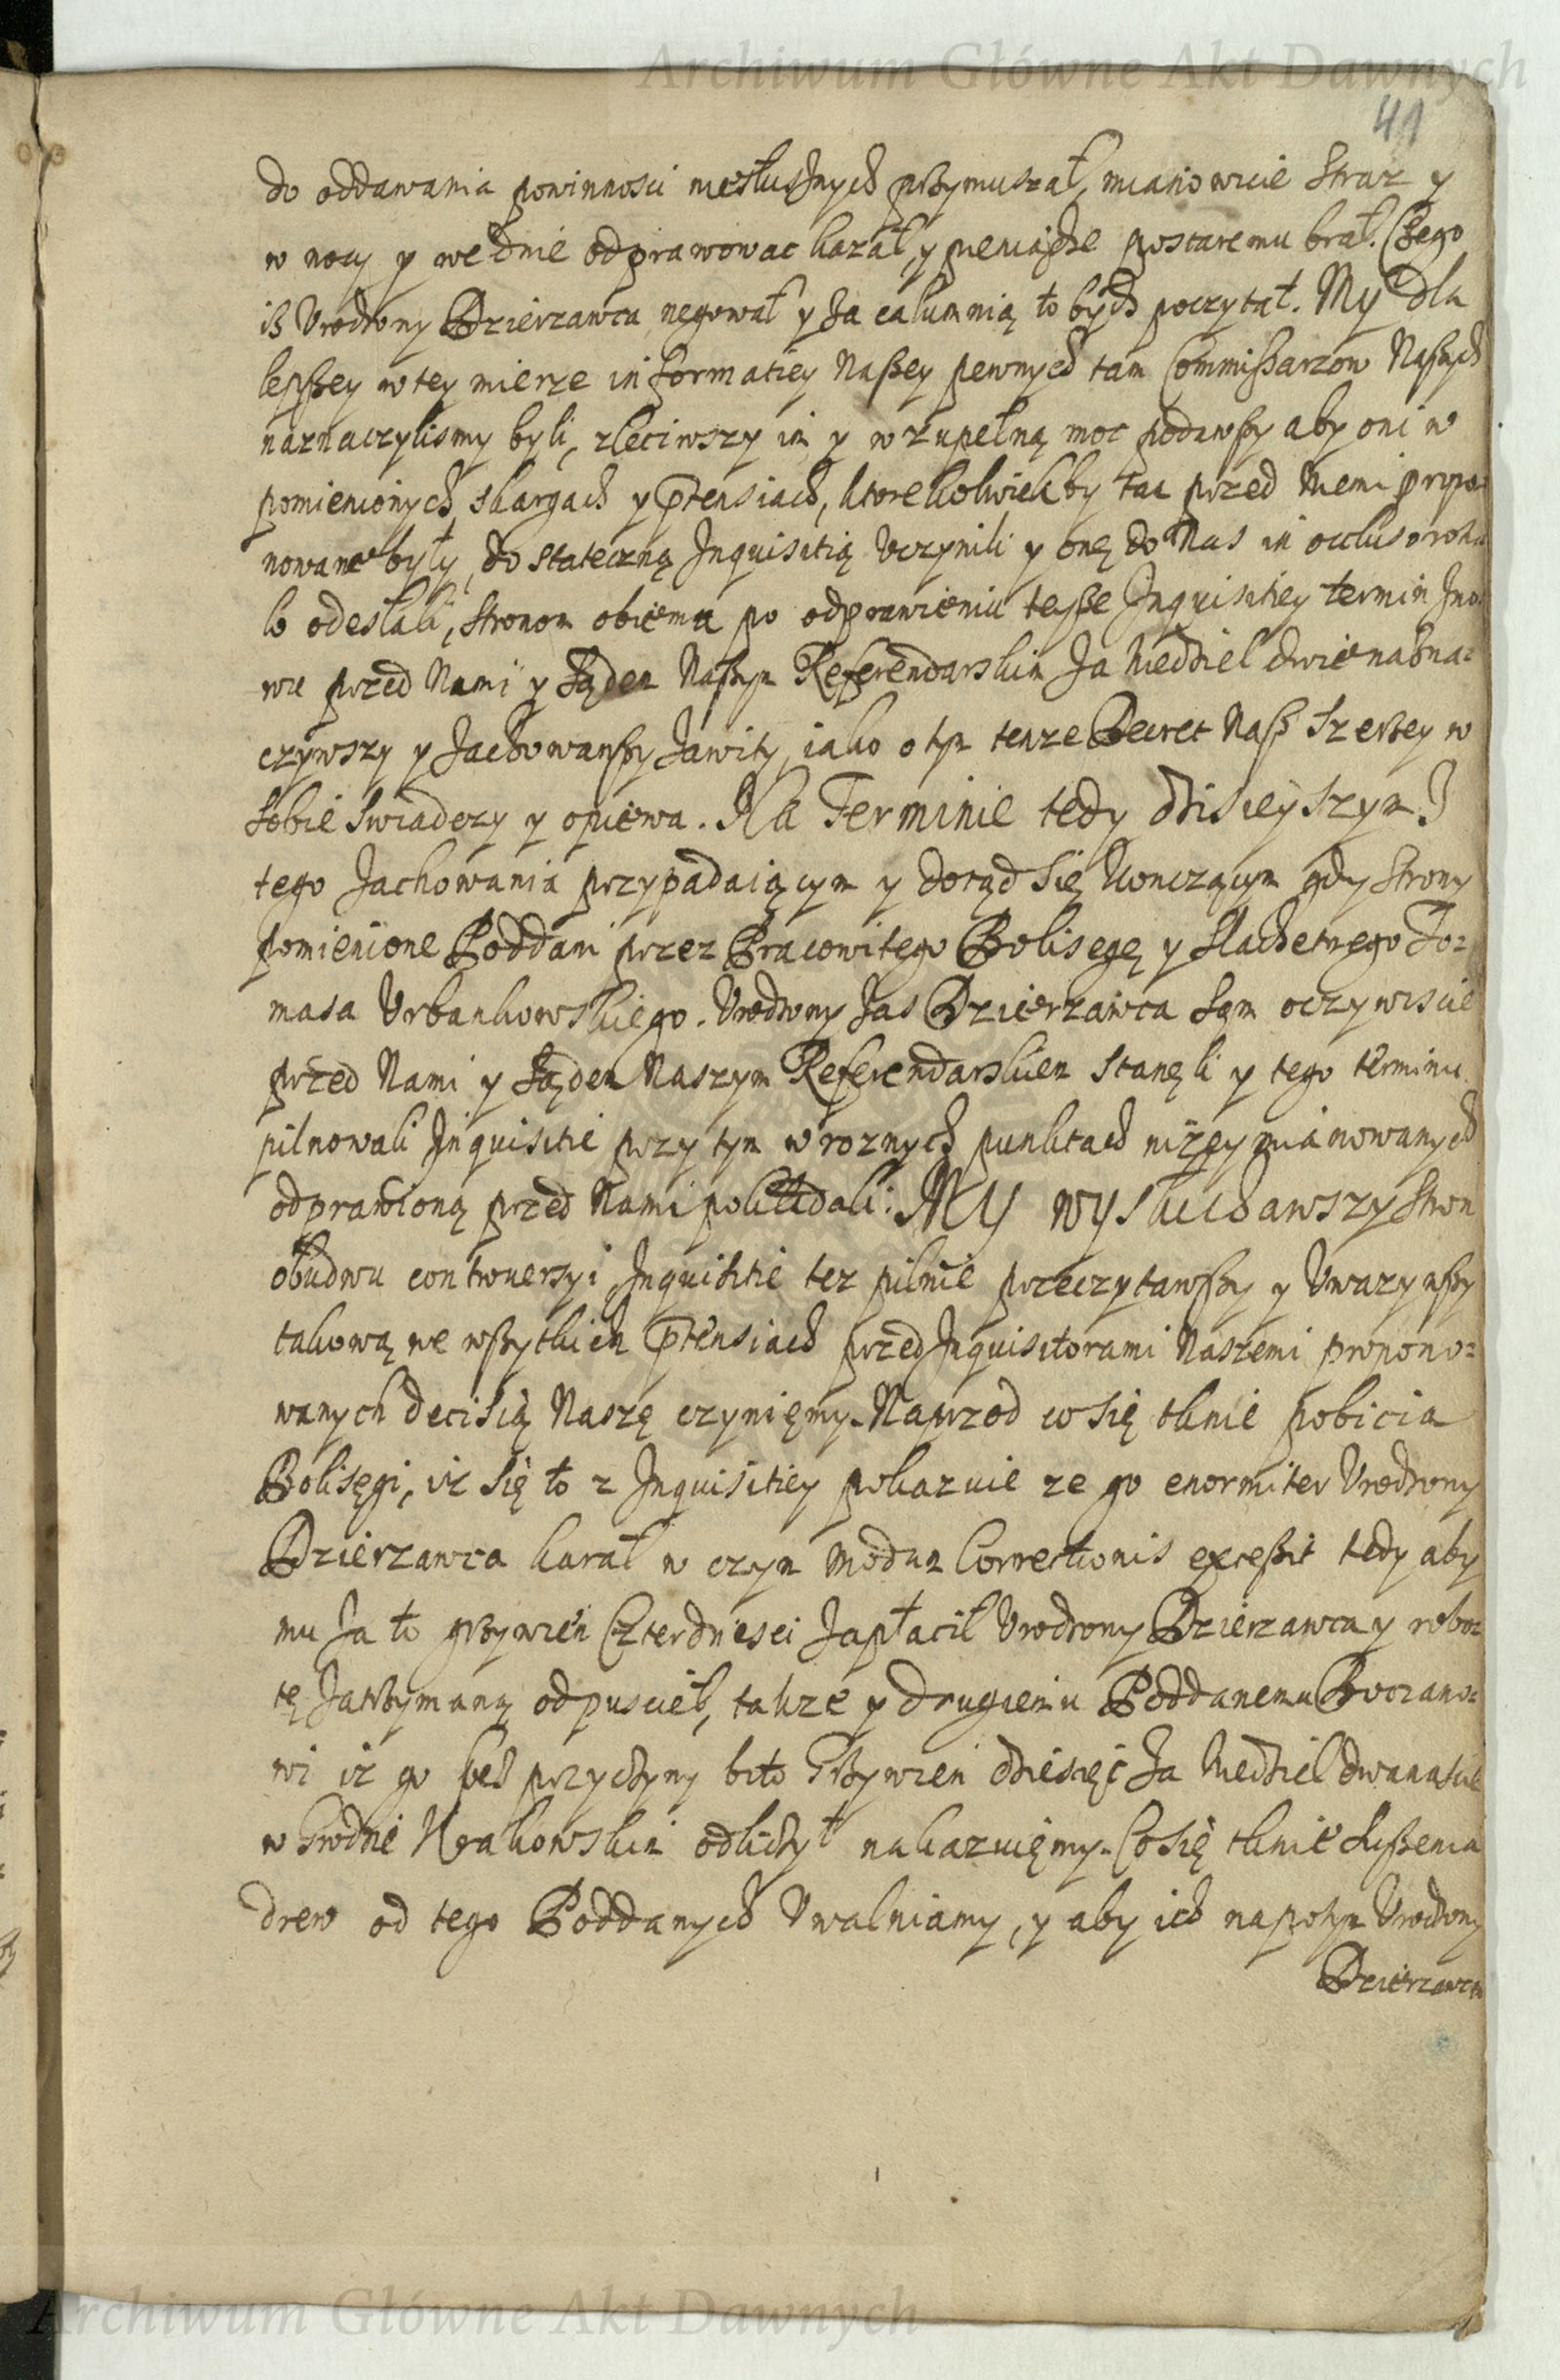 Archiwum Główne Akt Dawnych
41
do oddawania powinnosci niesłusznych przymuszał, mianowicie Straz y
w nocy y we dnie odprawowac kazał, y pieniądze postaremu brał. Czego
iß Vrodzony Dzierzawca negował y za calumnią to bydź poczytał. My dla
lepßey w tey mierze informatiey Naßey pewnych tam Commißarzow Naßych
naznaczylismy byli, zleciwszy im y w zupełną moc podawßy aby oni w
pomienionych skargach y ptensiach, ktorekolwiekby tac przed niemi propo-
nowane były, dostateczną Inquisitią Vczynili y onę do Nas in occluso rotu-
lo odesłali, Stronom obiema po odprawieniu teyße Inquisitiey termin zno-
wu przed Nami y Sądem Naßym Referendarskim za niedziel dwie nazna-
czywszy y zachowawßy zawity, iako o tym tenze Decret Naß szerßey w
sobie swiadczy y opiewa. Na Terminie tedy dzisieyszym z
tego zachowania przypadaiącym y dotąd się konczącym gdy Strony
pomienione Poddani przez Pracowitego Bolisegę y Slachetnego To-
masa Vrbankowskiego. Vrodzony zas Dzierzawca sam oczywiscie
przed Nami y Sądem Naszym Referendarskiem stanęli y tego terminu
pilnowali Inquisitie przy tym w roznych punktach nizey mianowanych
odprawioną przed Nami pokładali: My wysłuchawszy Stron
obudwu controversyi, Inquisitie tez pilnie przeczytawßy y Vwazywßy
takową we wßytkich ptensiach przed Inquisitorami Naszemi propono-
wanych decisią Naszę czynięmy. Naprzod co się tknie pobicia
Bolisęgi, iz się to z Inquisitiey pokazuie ze go enormiter Vrodzony
Dzierzawca karał w czym modum Correctionis exceßit tedy aby
mu za to grzywien Czterdziesci zapłacił Vrodzony Dzierzawca y robo-
tę zatrzymaną odpuscieł, takze y drugiemu Poddanemu Boczano-
wi iz go bez przyczyny bito Grzywien dziesięć za niedziel dwanascie
w Grodzie Krakowskim odliczył nakazuięmy. Co się tknie sußenia
drew od tego Poddanych Vwalniamy, y aby ich napotym Vrodzony
Dzierzawca
Archiwum Główne Akt Dawnych